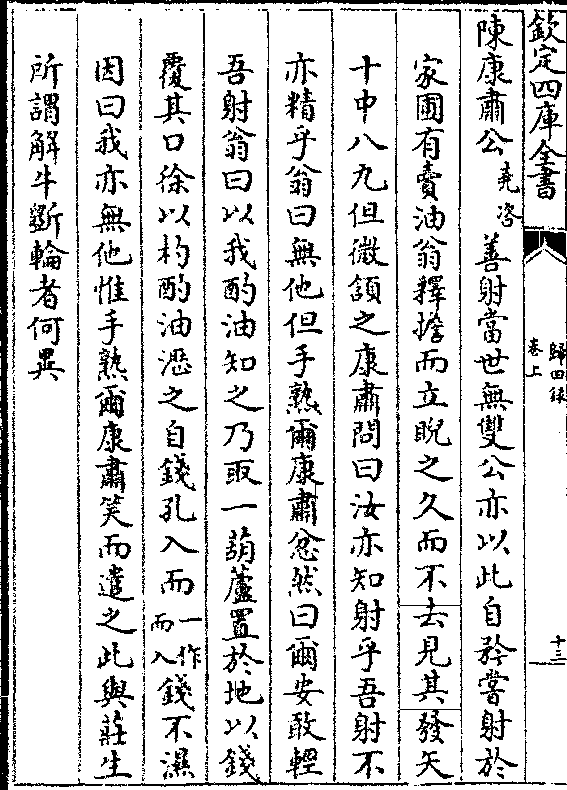 欽定四庫全書
歸田錄
卷上
十三
陳康肅公堯咨善射當世無雙公亦以此自矜嘗射於
家圃有賣油翁釋擔而立睨之久而不去見其發矢
十中八九但微頷之康肅問曰汝亦知射乎吾射不
亦精乎翁曰無他但手熟爾康肅忿然曰爾安敢輕
吾射翁曰以我酌油知之乃取一葫蘆置於地以錢
覆其口徐以杓酌油瀝之自錢孔入而一作而入錢不濕
因曰我亦無他惟手熟爾康肅笑而遣之此與莊生
所謂解牛斲輪者何異